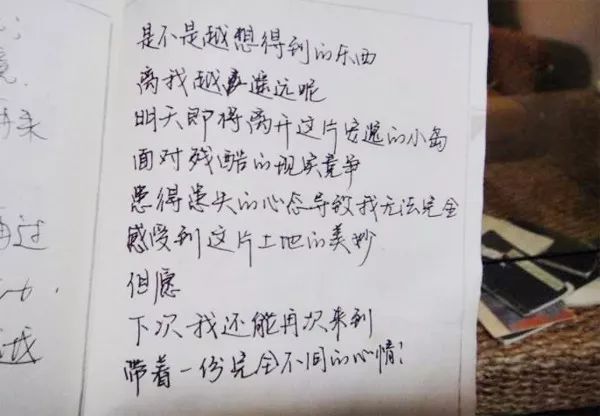 是不是越想得到的东西
离我越遥远呢
明天即将离开这片安逸的小岛
面对残酷的现实竞争
患得患失的心态导致我无法完全
感受到这片土地的美妙
但愿
下次我还能再次来到
带着一份完全不同的心情！
再过